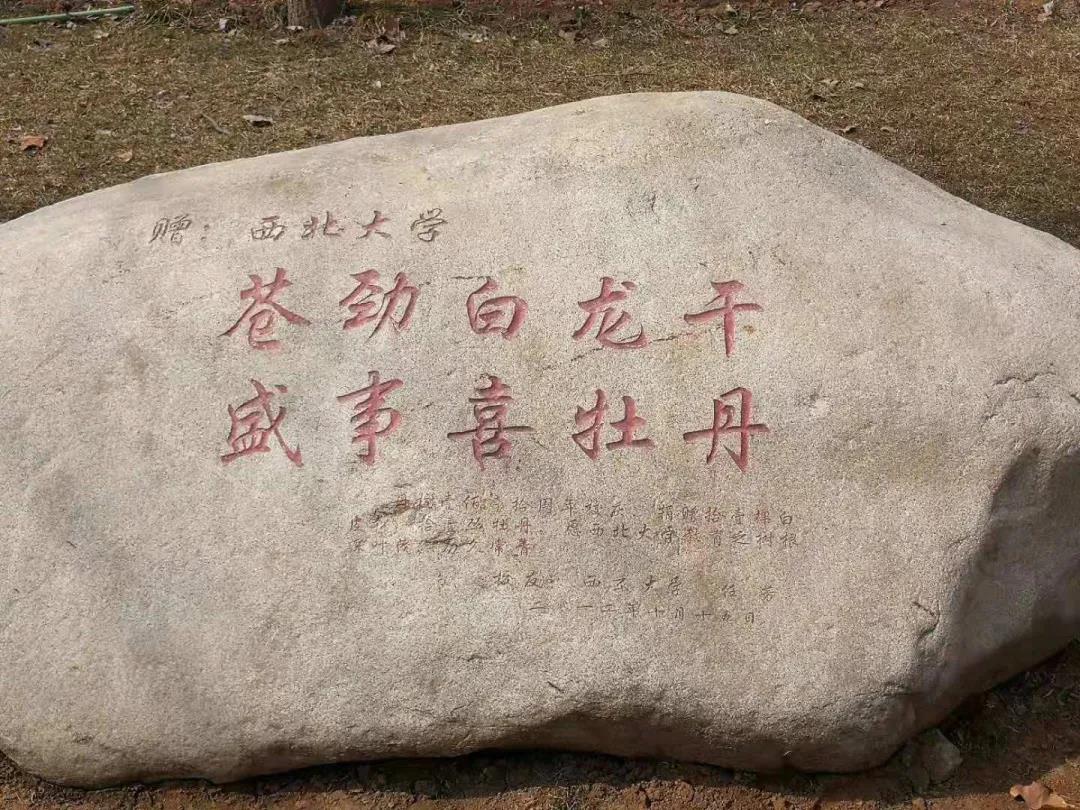 赠：西北大学
苍劲白龙干
盛事喜牡丹
母校壹佰 拾周年校庆，捐赠拾壹棵白
皮 拾壹 牡丹。愿西北大学教育之树根
深叶茂，历久常青
校友：西京大学 任 芳
二 一二年十月十五日